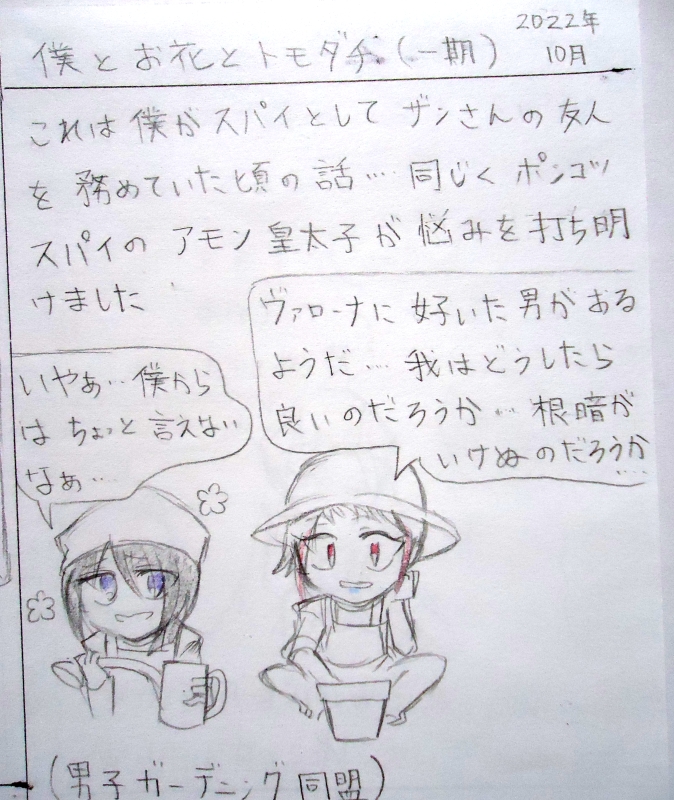 2022年
10月
僕とお花とトモダチ(一期)
これは僕がスパイとしてザンさんの友人
を務めていた頃の話…同じくポンコツ
スパイのアモン皇太子が悩みを打ち明
けました
ヴァローナに好いた男がおる
ようだ…我はどうしたら
良いのだろうか…根暗が
いけぬのだろうか
……
いやぁ…僕から
はちょっと言えない
なぁ…
(男子ガーデニング同盟)